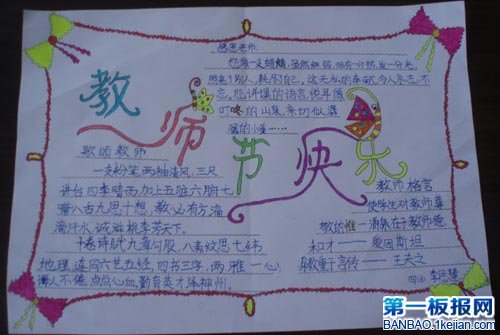 感恩老师
您像一支蜡蜡,虽然细弱,但有一分热,发一分光,
照亮了别人,耗尽了自己。这无私的奉献,令人永志不
忘。您讲课的语言,悦耳像
叮咚的山泉,亲切似潺
潺的小溪……
教师节快乐
歌颂教师
一支粉笔,两袖清风,三尺
讲台四季晴雨,加上五脏六腑七
嘴八舌九思十想,教必有方,滴
滴汗水,诚滋桃李芳天下。
十卷诗赋九章勾股,八索文思七纬
地理,连同六艺五经,四书三字,两雅一心,
诲人不倦,点点心血,勤育英才泽神州。
教师格言
使学生对教师尊
敬的惟一源泉在于教师的德
和才——爱因斯坦
身教重于言传——王夫之
第一板报网
BANBAO.1kejian.com